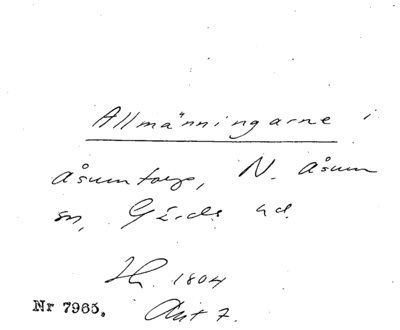 Allmänningarne i
Åsumtorp, N. Åsum
sn, Gärds hd.
H. 1804
Nr 7965. Akt 7.